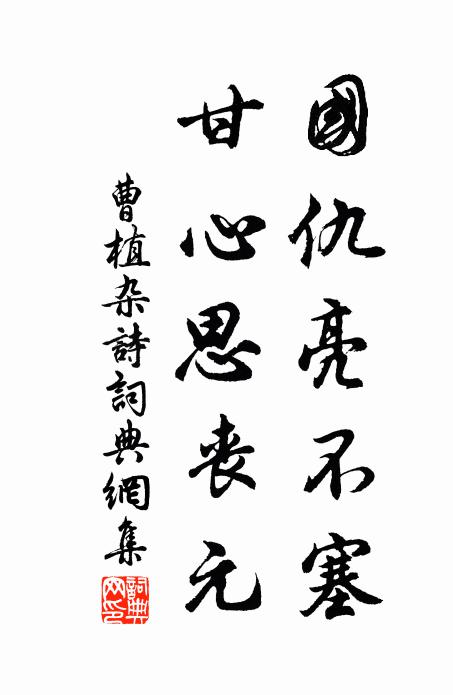 國仇亮不塞
甘心思喪元
曹植杂詩詞典網集
詞典网印